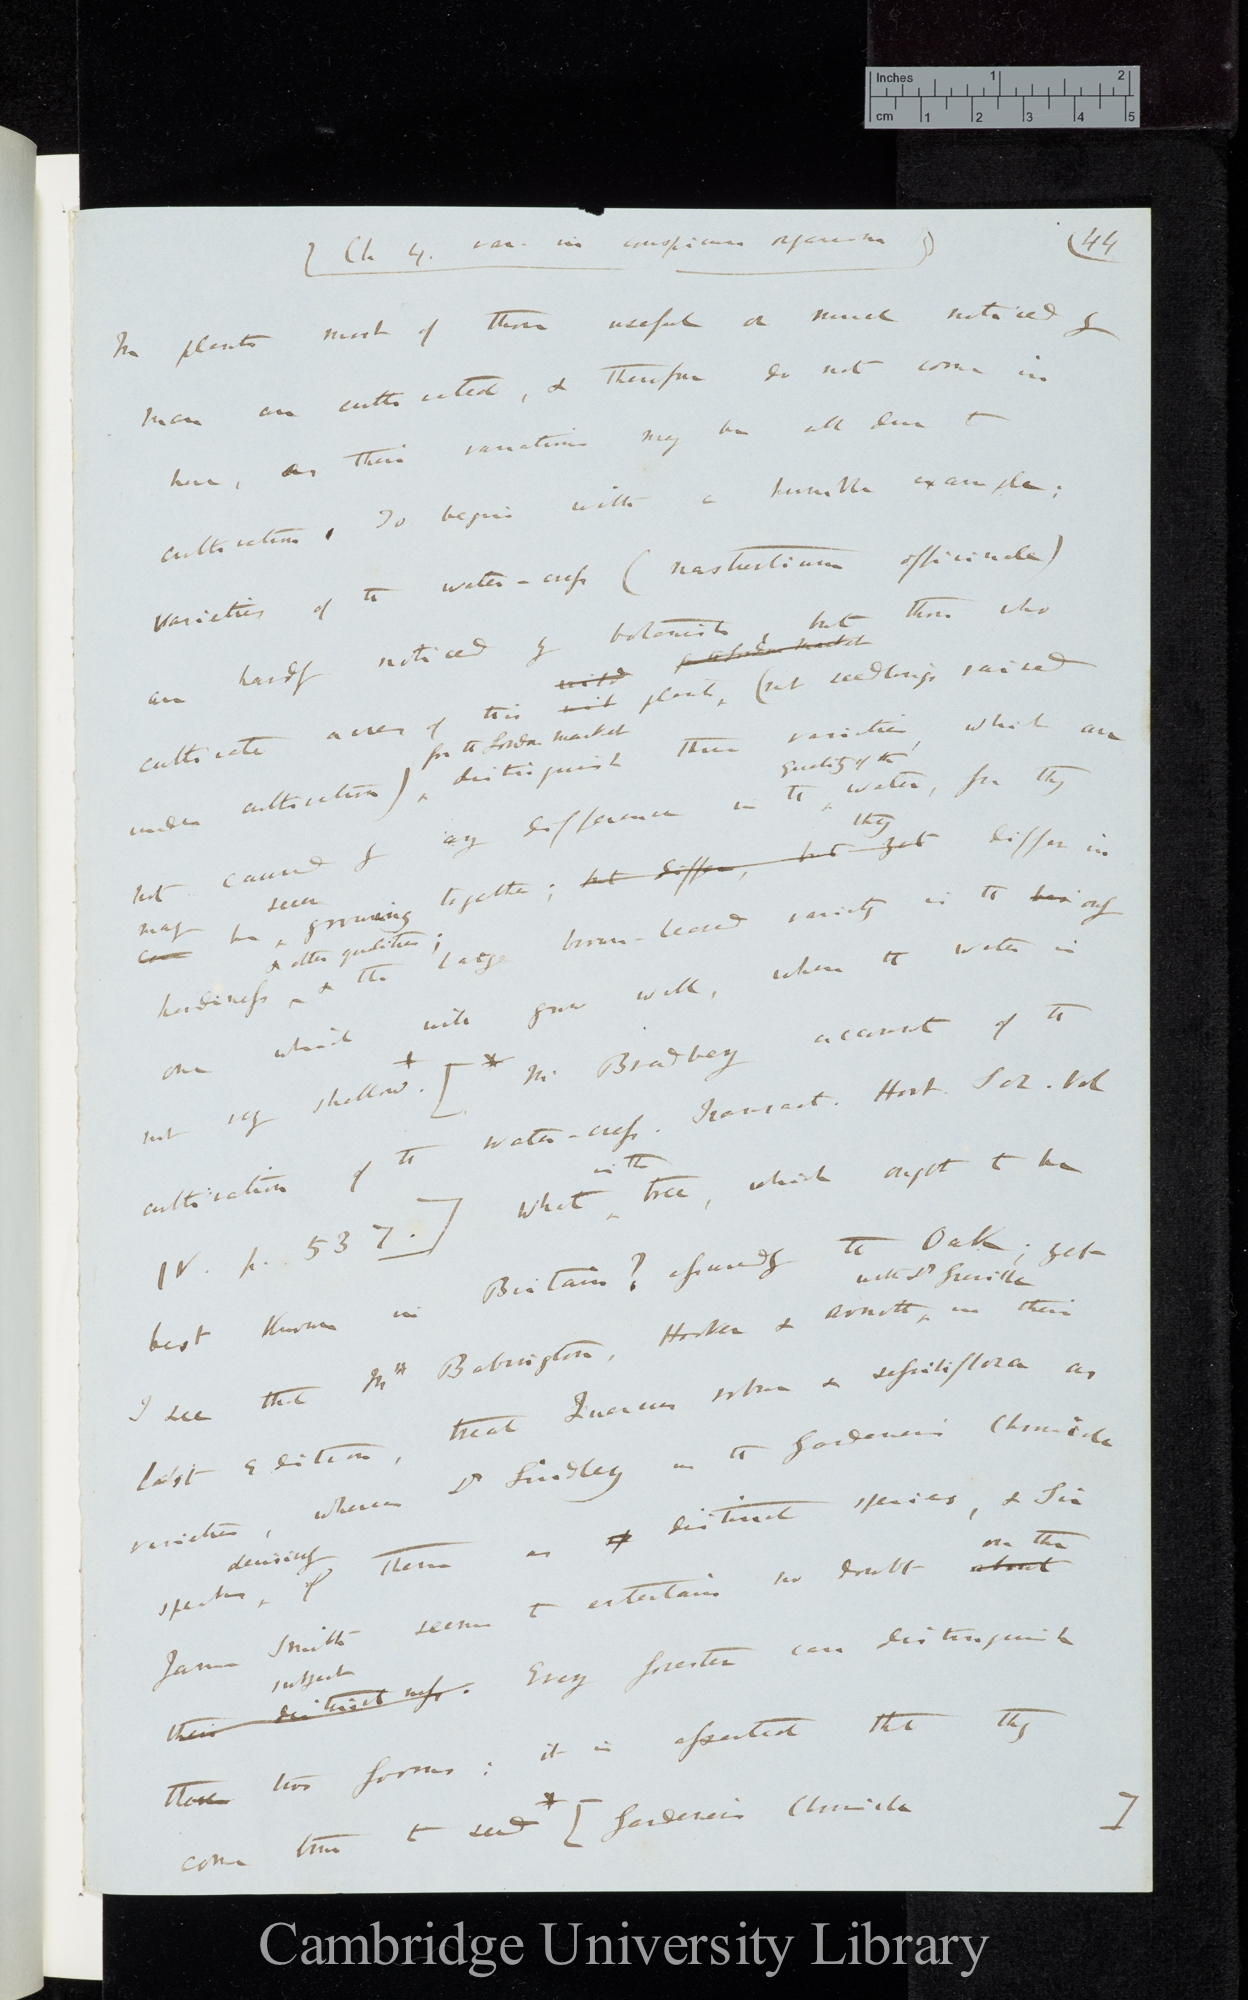 Inches 1 2
cm 1 2 3 4 5
[Ch 4. var. in conspicuous organisms]
(44
In plants most of those useful or much noticed by
man are cultivated, & therefore do not come in
here, as their variations may be all due to
cultivation. To begin with a humble example;
varieties of the water-cress (nasturtium officinale)
are hardly noticed by botanists, but those who
wild for the London market
cultivate acres of this wild plant, (not seedlings raised
for the London market
under cultivation), distinguish three varieties, which are
quality of the
not caused by any difference in the water, for they
may seen they
can be growing together; but differ, but yet differ in
& other qualities;
hardiness, & the large brown-leaved variety is the only
one which will grow well, where the water is
not very shallow.* [* Mr Bradbery account of the
cultivation of the water-cress. Transact. Hort. Soc. Vol
IV. p. 537.] What tree, which ought to be
in the
best known in Britain? assuredly the Oak; yet
with Dr Greville
I see that Mr Babington, Hooker & Arnott, in their
last Edition, treat Quercus robur & sessiliflora as
varieties, whereas Dr Lindley in the Gardeners Chronicle
decisively
speaks of them as distinct species, & Sir
on the
James Smith seems to entertain no doubt about
subject
their distinctness. Every forester can distinguish
these two forms; it is asserted that they
come true to seed* [Gardeners Chronicle ]
Cambridge University Library